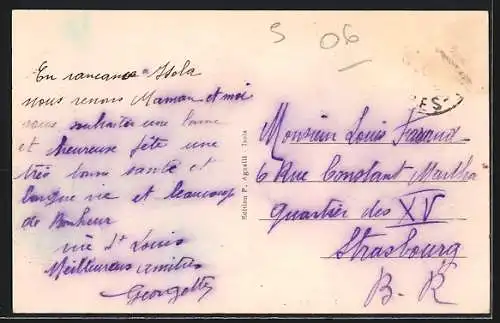 S 06
En vacances Isola
nous venons Maman et moi
vous souhaiter une bonne
et heureuse fête une
très bonne santé et
longue vie et beaucoup
de Bonheur
vive St Louis
Meilleures amitiés
Georgette
Edition F. Agnelli - Isola
ES
Monsieur Louis
6 Rue Constant Martha
Quartier des XV
Strasbourg
B-R